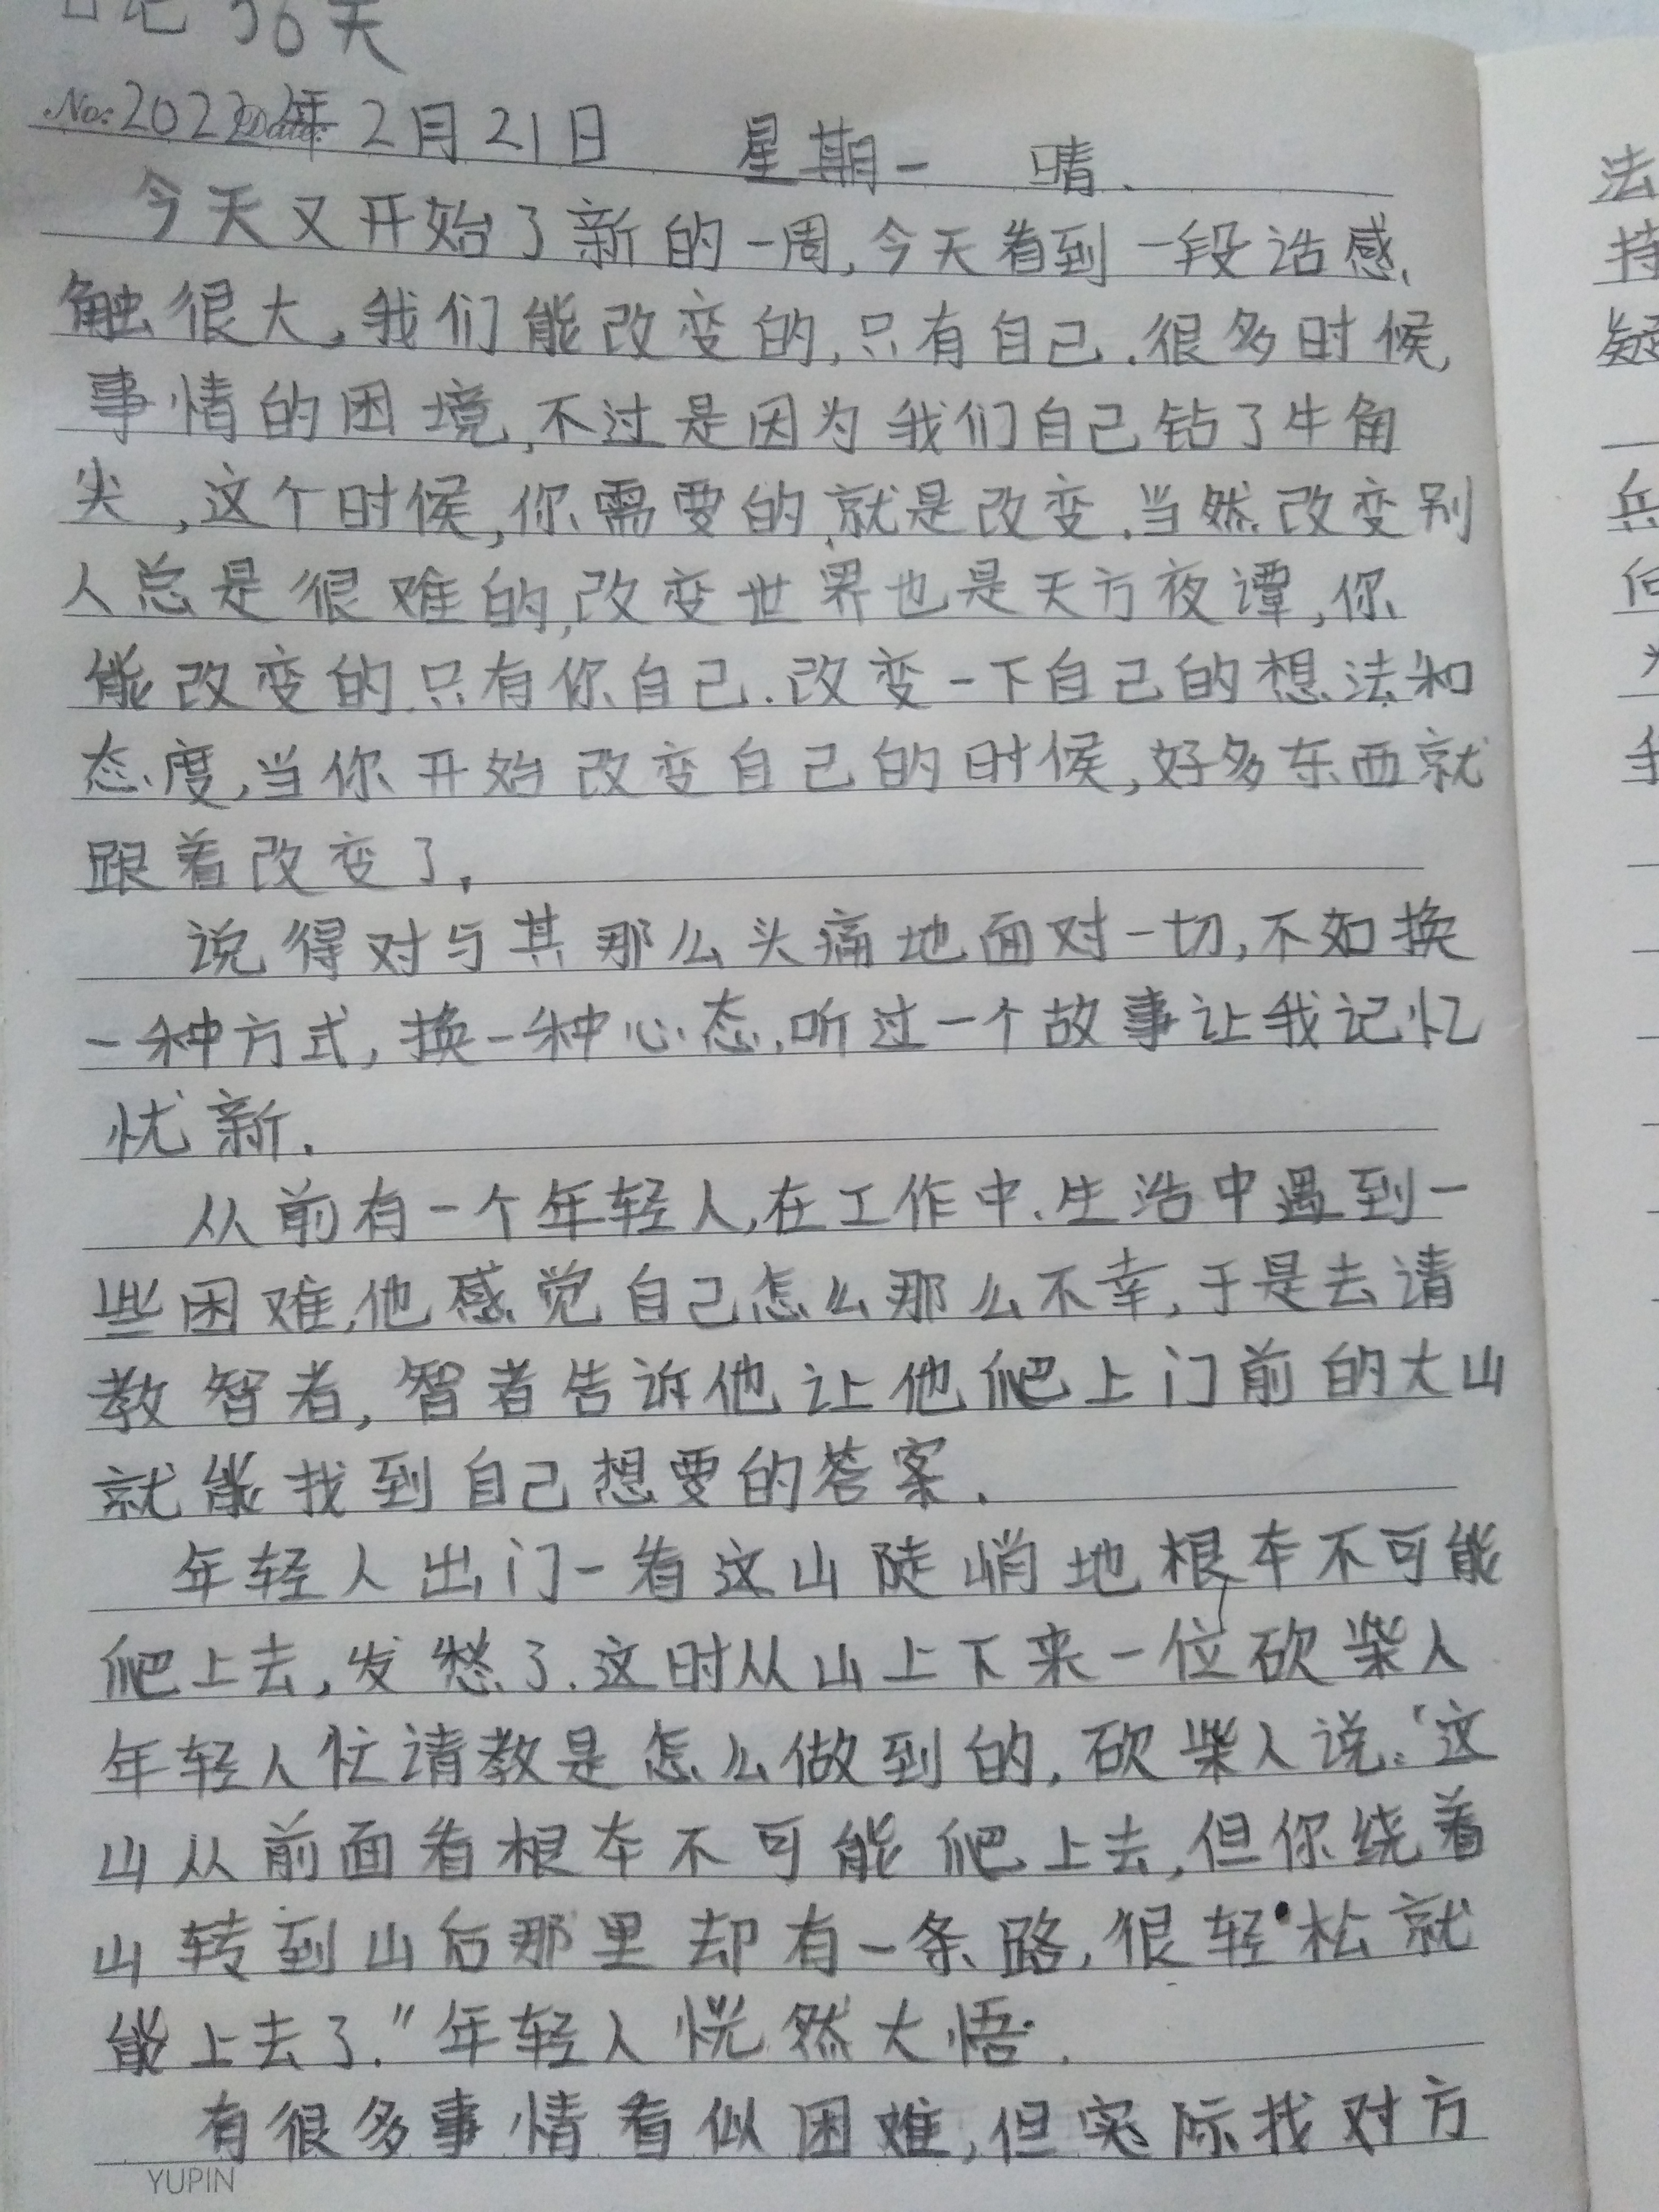 56天
No: 2022年 Date: 2月21日 星期一 晴.
今天又开始了新的一周,今天看到一段话感
触很大,我们能改变的,只有自己.很多时候,
事情的困境,不过是因为我们自己钻了牛角
尖,这个时候,你需要的,就是改变.当然改变别
人总是很难的,改变世界也是天方夜谭,你
能改变的只有你自己.改变一下自己的想法和
态度,当你开始改变自己的时候,好多东西就
跟着改变了.
说得对与其那么头痛地面对一切,不如换
一种方式,换一种心态,听过一个故事让我记忆
忧新.
从前有一个年轻人,在工作中.生活中遇到一
些困难,他感觉自己怎么那么不幸,于是去请
教智者,智者告诉他让他爬上门前的大山
就能找到自己想要的答案.
年轻人出门一看这山陡峭地根本不可能
爬上去,发愁了.这时从山上下来一位砍柴人
年轻人忙请教是怎么做到的,砍柴人说:"这
山从前面看根本不可能爬上去,但你绕着
山转到山后那里却有一条路,很轻松就
能上去了."年轻人恍然大悟.
有很多事情看似困难,但实际找对方
YUPIN
法
持
疑
兵
向
我